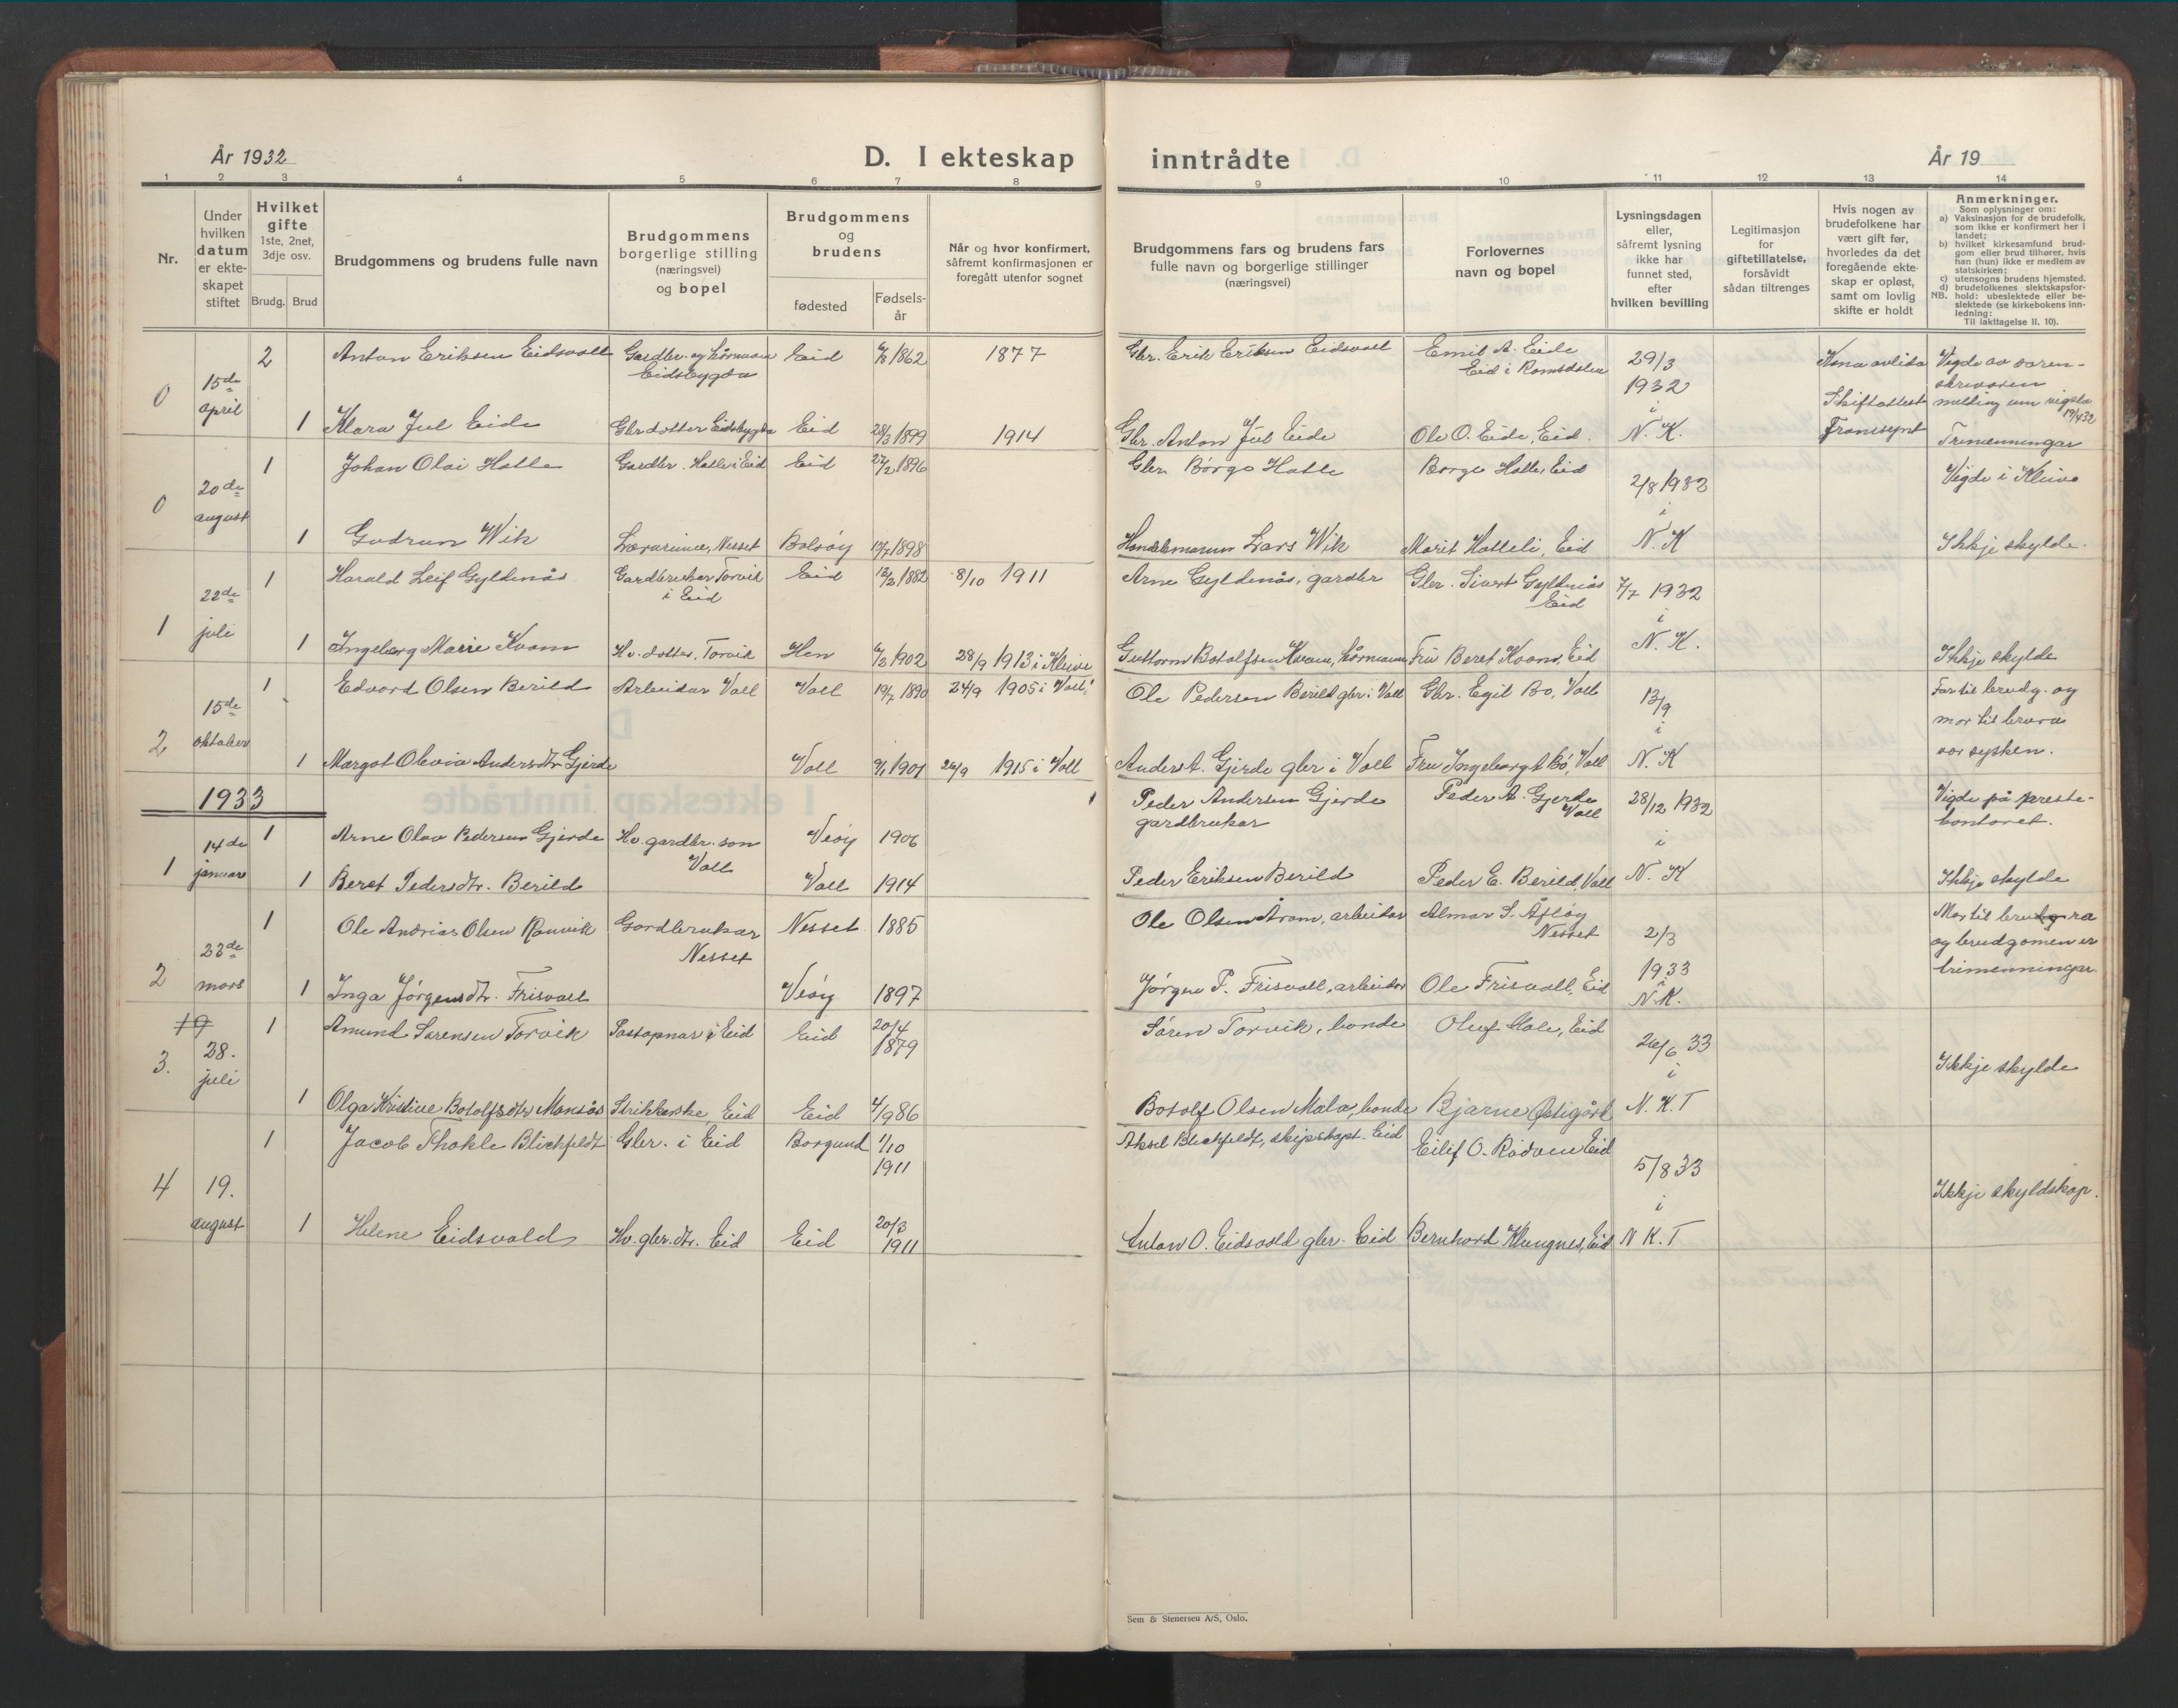 År 1932
D. I ekteskap inntrådte
År 19
1 2 3 4 5 6 7 8 9 10 11 12 13 14
Nr.
Under hvilken datum er ekte-skapet stiftet
Hvilket gifte 1ste, 2net, 3dje osv.
Brudg. Brud
Brudgommens og brudens fulle navn
Brudgommens borgerlige stilling (næringsvei) og bopel
Brudgommens og brudens
fødested
Fødsels-år
Når og hvor konfirmert, såfremt konfirmasjonen er foregått utenfor sognet
Brudgommens fars og brudens fars fulle navn og borgerlige stillinger (næringsvei)
Forlovernes navn og bopel
Lysningsdagen eller, såfremt lysning ikke har funnet sted, efter hvilken bevilling
Legitimasjon for giftetillatelse, forsåvidt sådan tiltrenges
Hvis nogen av brudefolkene har vært gift før, hvorledes da det foregående ekte-skap er opløst, samt om lovlig skifte er holdt
Anmerkninger.
Som oplysninger om:
a) Vaksinasjon for de brudefolk, som ikke er konfirmert her i landet;
b) hvilket kirkesamfund brud-gom eller brud tilhører, hvis han (hun) ikke er medlem av statskirken;
c) utensogns brudens hjemsted.
d) brudefolkenes slektskapsfor-hold: ubeslektede eller be-slektede (se kirkebokens inn-ledning:
NB. Til iakttagelse II. 10).
0 15de april 2 Anton Eriksen Eidsvoll Gardbr. og kårmann Eidsbygda Eid 1862 1877 Gbr. Erik Eriksen Eidsvoll Emil A. Eide Eid i Romsdalen 29/3 1932 i N. K. Kona avlida Skifteattest framsynt Vigde av soren-skrivaren melding um vigsla
1 Klara Jul Eide Gbr dotter Eidsbygda Eid 28/3 1899 1914 Gbr. Anton Jul Eide Ole O. Eide, Eid. Trimenningar
0 20de august 1 Johan Olai Hatle Gardbr. Hatle i Eid Eid 27/2 1896 Gbr. Børge Hatle Børge Hatle, Eid 2/8 1932 i N. K Vigde i Kleive
1 Gudrun Wik Lærarinne, Nesset Bolsøy 1898 Handelsmann Lars Wik Marit Hatteli, Eid Ikkje skylde.
1 22de juli 1 Harald Leif Gyldenås Gardbrukar Torvik i Eid Eid 1882 8/10 1911 Arne Gyldenås, gardbr Gbr. Sivert Gyldnås Eid 7/7 1932 i N. K.
1 Ingeborg Marie Kvam Hv. dotter, Torvik Hen 1902 28/9 1913 i Kleive Guttorm Botolfsen Kvam, kårmann Fru Beret Kvam, Eid Ikkje skylde
2 15de oktober 1 Edvard Olsen Berild Arbeidar Voll Voll 19/7 1890 24/9 1905 i Voll Ole Pedersen Berild gbr. i Voll Gbr. Egil Bø, Voll 13/9 i N. K Far til brudg. og mor til brura var sysken.
1 Margot Olevia Andersdtr Gjerde Voll 1901 26/9 1915 i Voll Anders A. Gjerde gbr i Voll Fru Ingeborg Bø, Voll
1933
1 14de januar 1 Arne Olav Pedersen Gjerde Hv. gardbr. son Voll Veøy 1906 Peder Andersen Gjerde gardbrukar Peder A. Gjerde Voll 28/12 1932 i N. K Vigde på preste-kontoret.
1 Beret Pedersdtr. Berild Voll 1914 Peder Eriksen Berild Peder E. Berild, Voll Ikkje skylde
2 22de mars 1 Ole Andrias Olsen Ranvik Gardbrukar Nesset Nesset 1885 Ole Olsen Aram, arbeidar Almar S. Åfløy Nesset 2/3 1933 i N. K. Mor til brudgra og brudgomen er trimenningar
1 Inga Jørgensdtr. Frisvoll Veøy 1897 Jørgen P. Frisvoll, arbeidar Ole Frisvoll, Eid
19
3. 28. juli 1 Amund Sørensen Torvik Postopnar i Eid Eid 20/4 1879 Søren Torvik, bonde Oluf Hole, Eid 26/6 33 i N. K. T Ikkje skylde
1 Olga Kristine Botolfsdtr Monsås Strikkerske Eid Eid 4/9 86 Botolf Olsen Mala, bonde Bjarne Østigård
4 19. august 1 Jacob Thokle Blichfeldt Gbr. i Eid Borgund 1/10 1911 Aksel Blichfeldt, skipskapt. Eid Eilif O. Rødven Eid 5/8 33 i N K. T Ikkje skyldskap.
1 Helene Eidsvold Hv. gbr. dtr. Eid Eid 20/3 1911 Anton O. Eidsvold gbr. Eid Bernhard Klungnes, Eid
Sem & Stenersen A/S, Oslo.